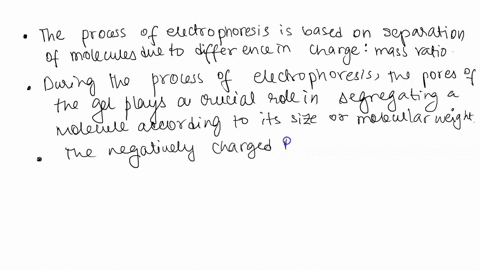 • The process of electrophoresis is based on separation
of molecules due to difference in charge : mass ratio.
• During the process of electrophoresis, the pores of
the gel plays a crucial role in segregating a
molecule according to its size or molecular weight.
• The negatively charged P